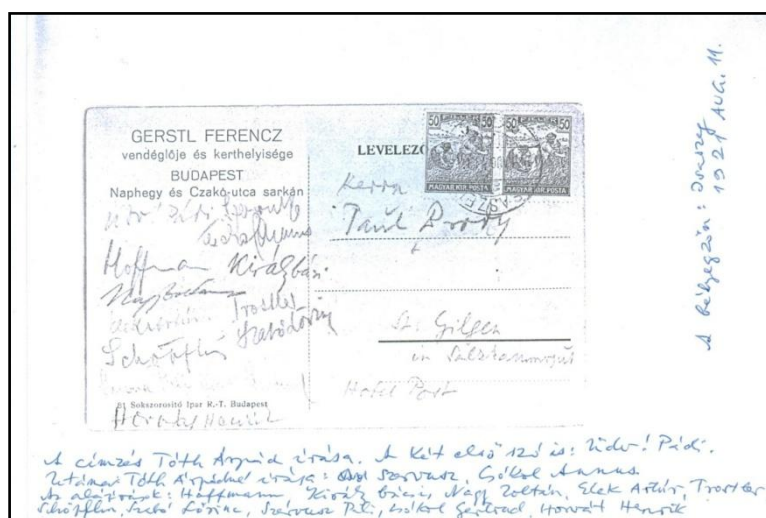 GERSTL FERENCZ
vendéglője és kerthelyisége
BUDAPEST
Naphegy és Czakó-utca sarkán
Üdv! Pádi Szervusz
Csókol Annus
Hoffmann Király bási
Nagy Zoltán
Trostler
Schöpflin Szabó Lőrinc
51 Sokszorosító Ipar R.-T. Budapest
Horváth Henrik
LEVELEZŐ
50 50 50 50
MAGYAR KIR. POSTA MAGYAR KIR. POSTA
Herrn
Paul Brody
St. Gilgen
in Salzkammergut
Hotel Post
A bélyegzőn: Ország
1921 AUG. 11.
A címzés Tóth Árpád írása. A két első szó is: Üdv! Pádi.
Utána Tóth Árpádné írása: Szervusz, Csókol Annus
Az aláírások: Hoffmann, Király bácsi, Nagy Zoltán, Elek Artúr, Trostler
Schöpflin, Szabó Lőrinc, Szervusz Pali, csókol Gertrud, Horvát Henrik